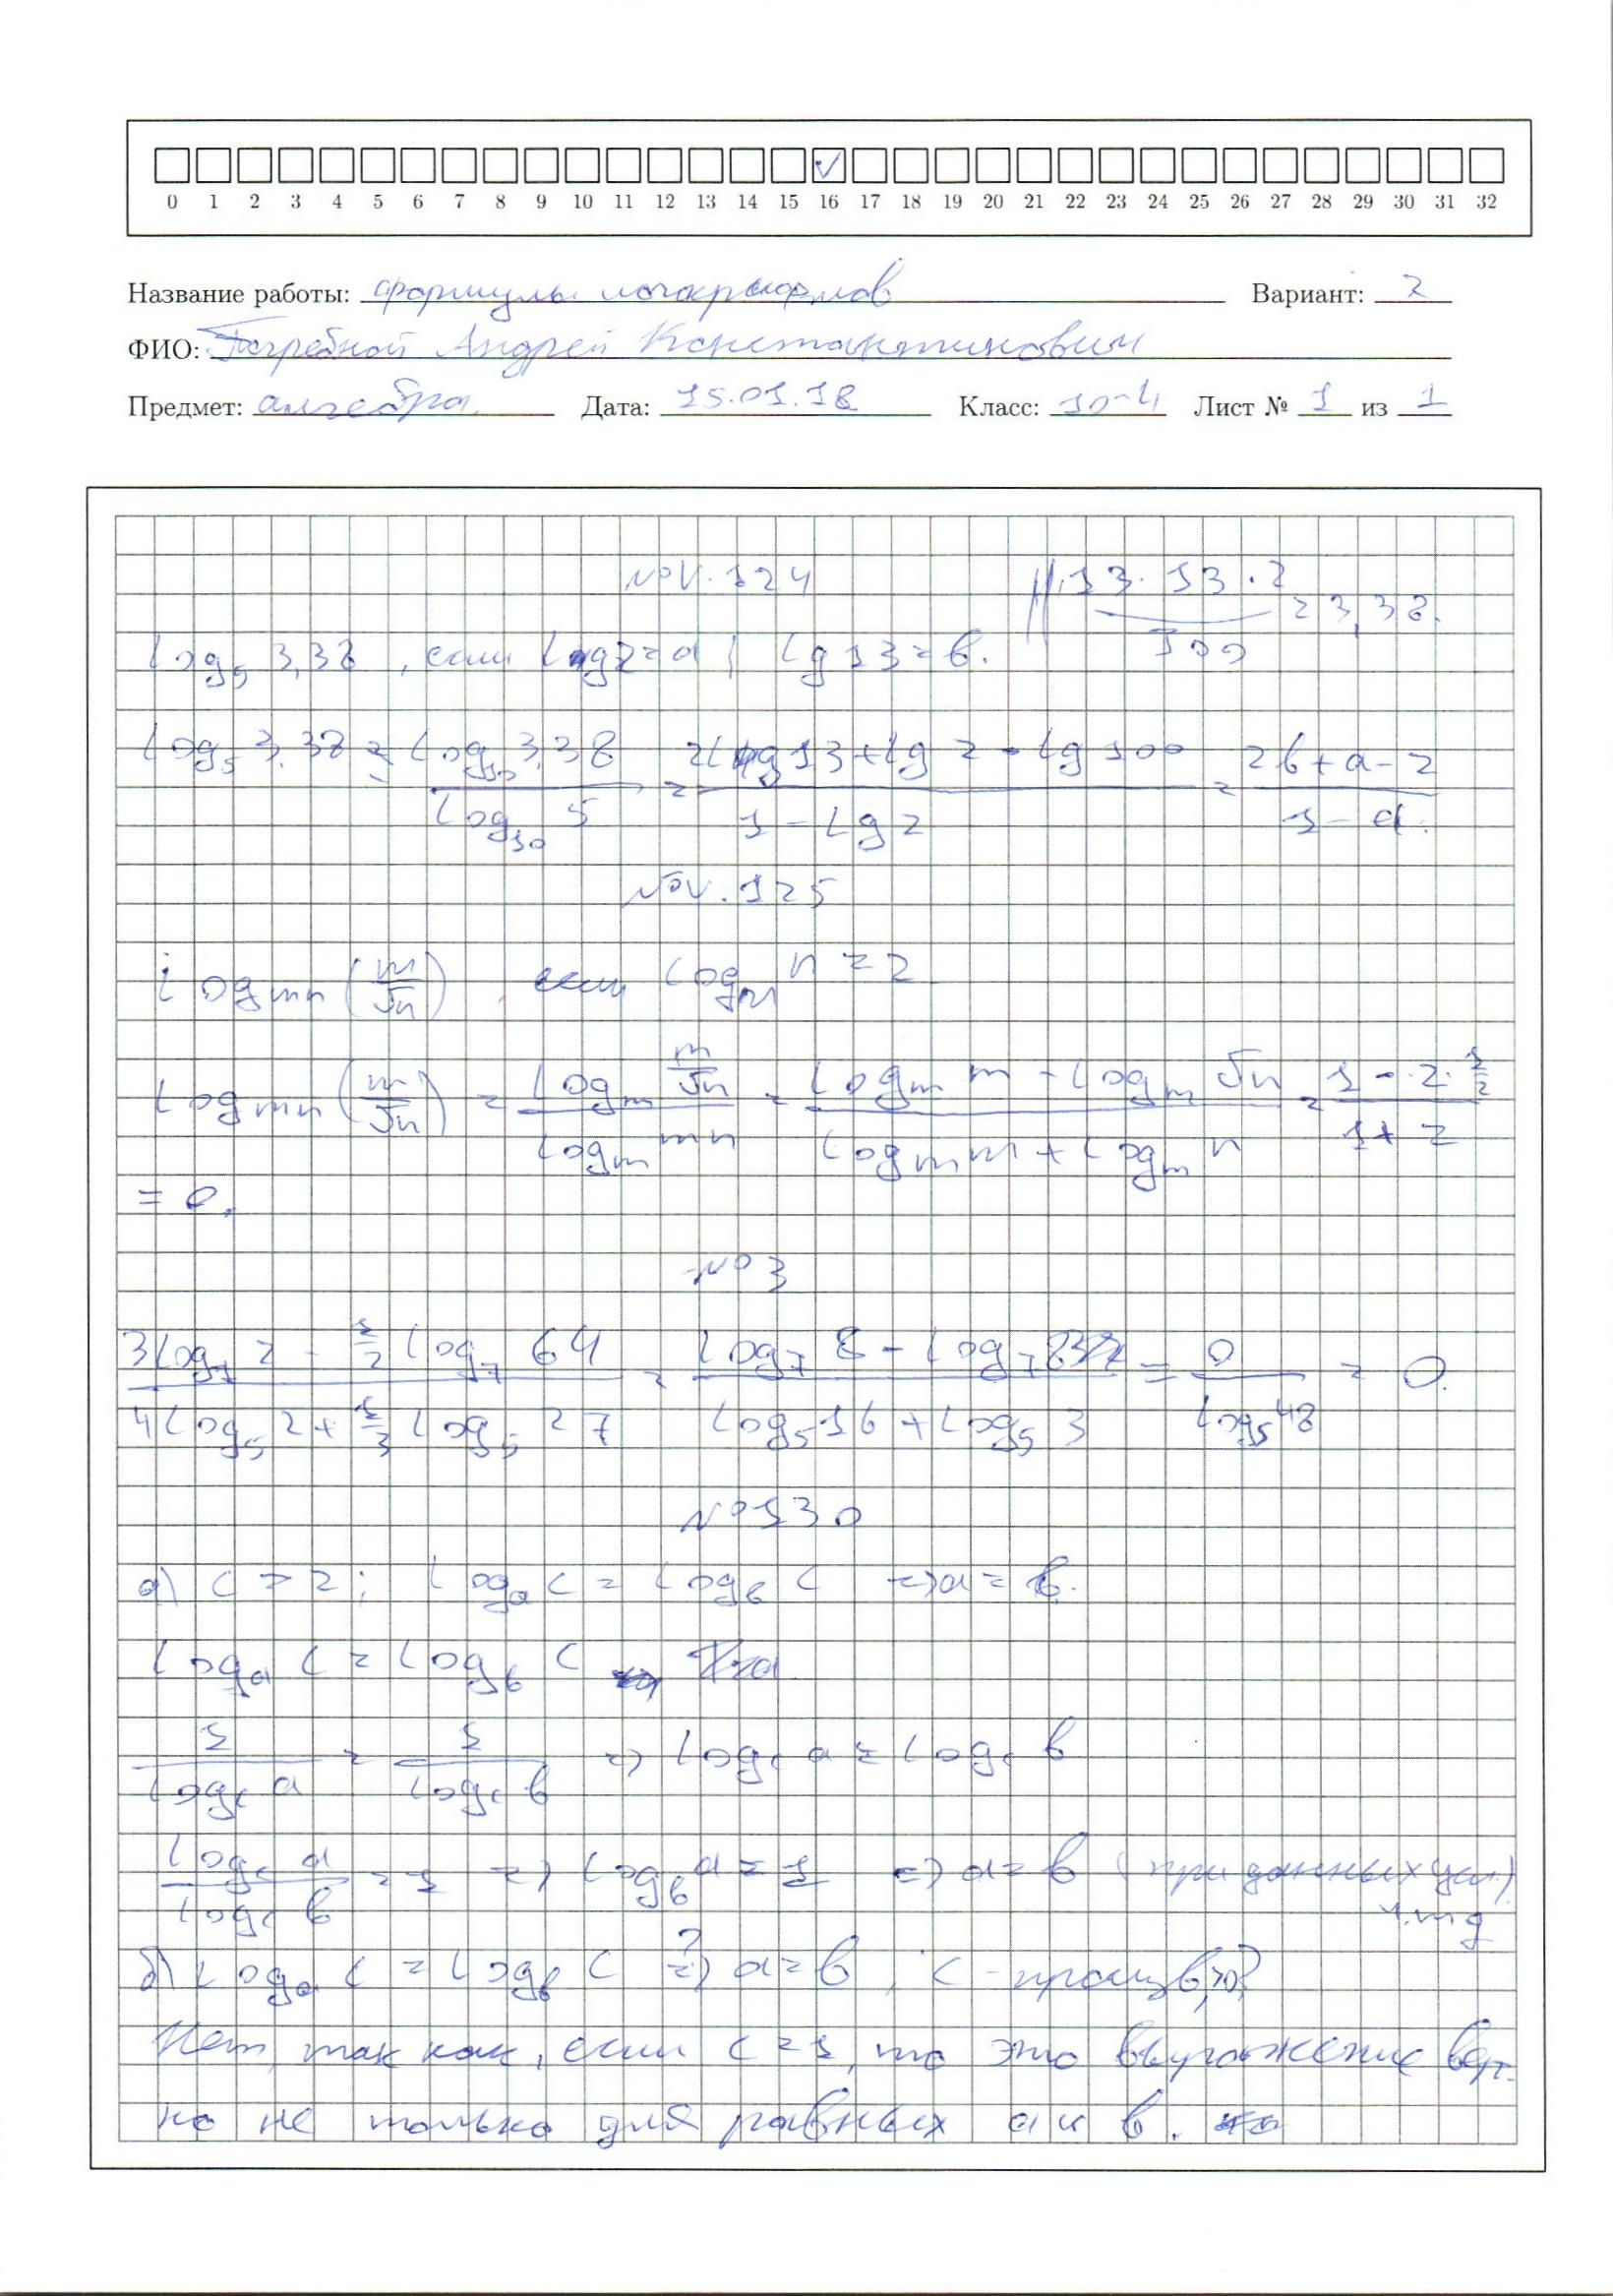 0 1 2 3 4 5 6 7 8 9 10 11 12 13 14 15 16 17 18 19 20 21 22 23 24 25 26 27 28 29 30 31 32
Название работы: формулы логарифмов Вариант: 2
ФИО: Погребной Андрей Константинович
Предмет: алгебра Дата: 15.01.18 Класс: 10-4 Лист № 1 из 1
№ V.124
13·13·2/100 = 3,38.
log₅ 3,38, если lg2=a, lg13=b.
log₅ 3,38 = log₁₀ 3,38 / log₁₀ 5 = (2lg13+lg2-lg100)/(1-lg2) = (2b+a-2)/(1-a).
№ V.125
log_mn (m/√n), если log_m n = 2
log_mn (m/√n) = (log_m m/√n)/(log_m mn) = (log_m m - log_m √n)/(log_m m + log_m n) = (1-2·1/2)/(1+2)
= 0.
№ 3
(3log₇ 2 - 1/2 log₇ 64)/(4log₅ 2 + 1/3 log₅ 27) = (log₇ 8 - log₇ 8)/(log₅ 16 + log₅ 3) = 0/log₅ 48 = 0.
№ 130
а) c > 1; log_a c = log_b c => a = b.
log_a c = log_b c
1/log_c a = 1/log_c b => log_c a = log_c b
log_c a/log_c b = 1 => log_b a = 1 => a = b (при данных усл.)
ч.тд
б) log_a c = log_b c ?=> a = b, c - произв,>0?
Нет, так как, если c=1, то это выражение вер-
но не только для равных a и b.